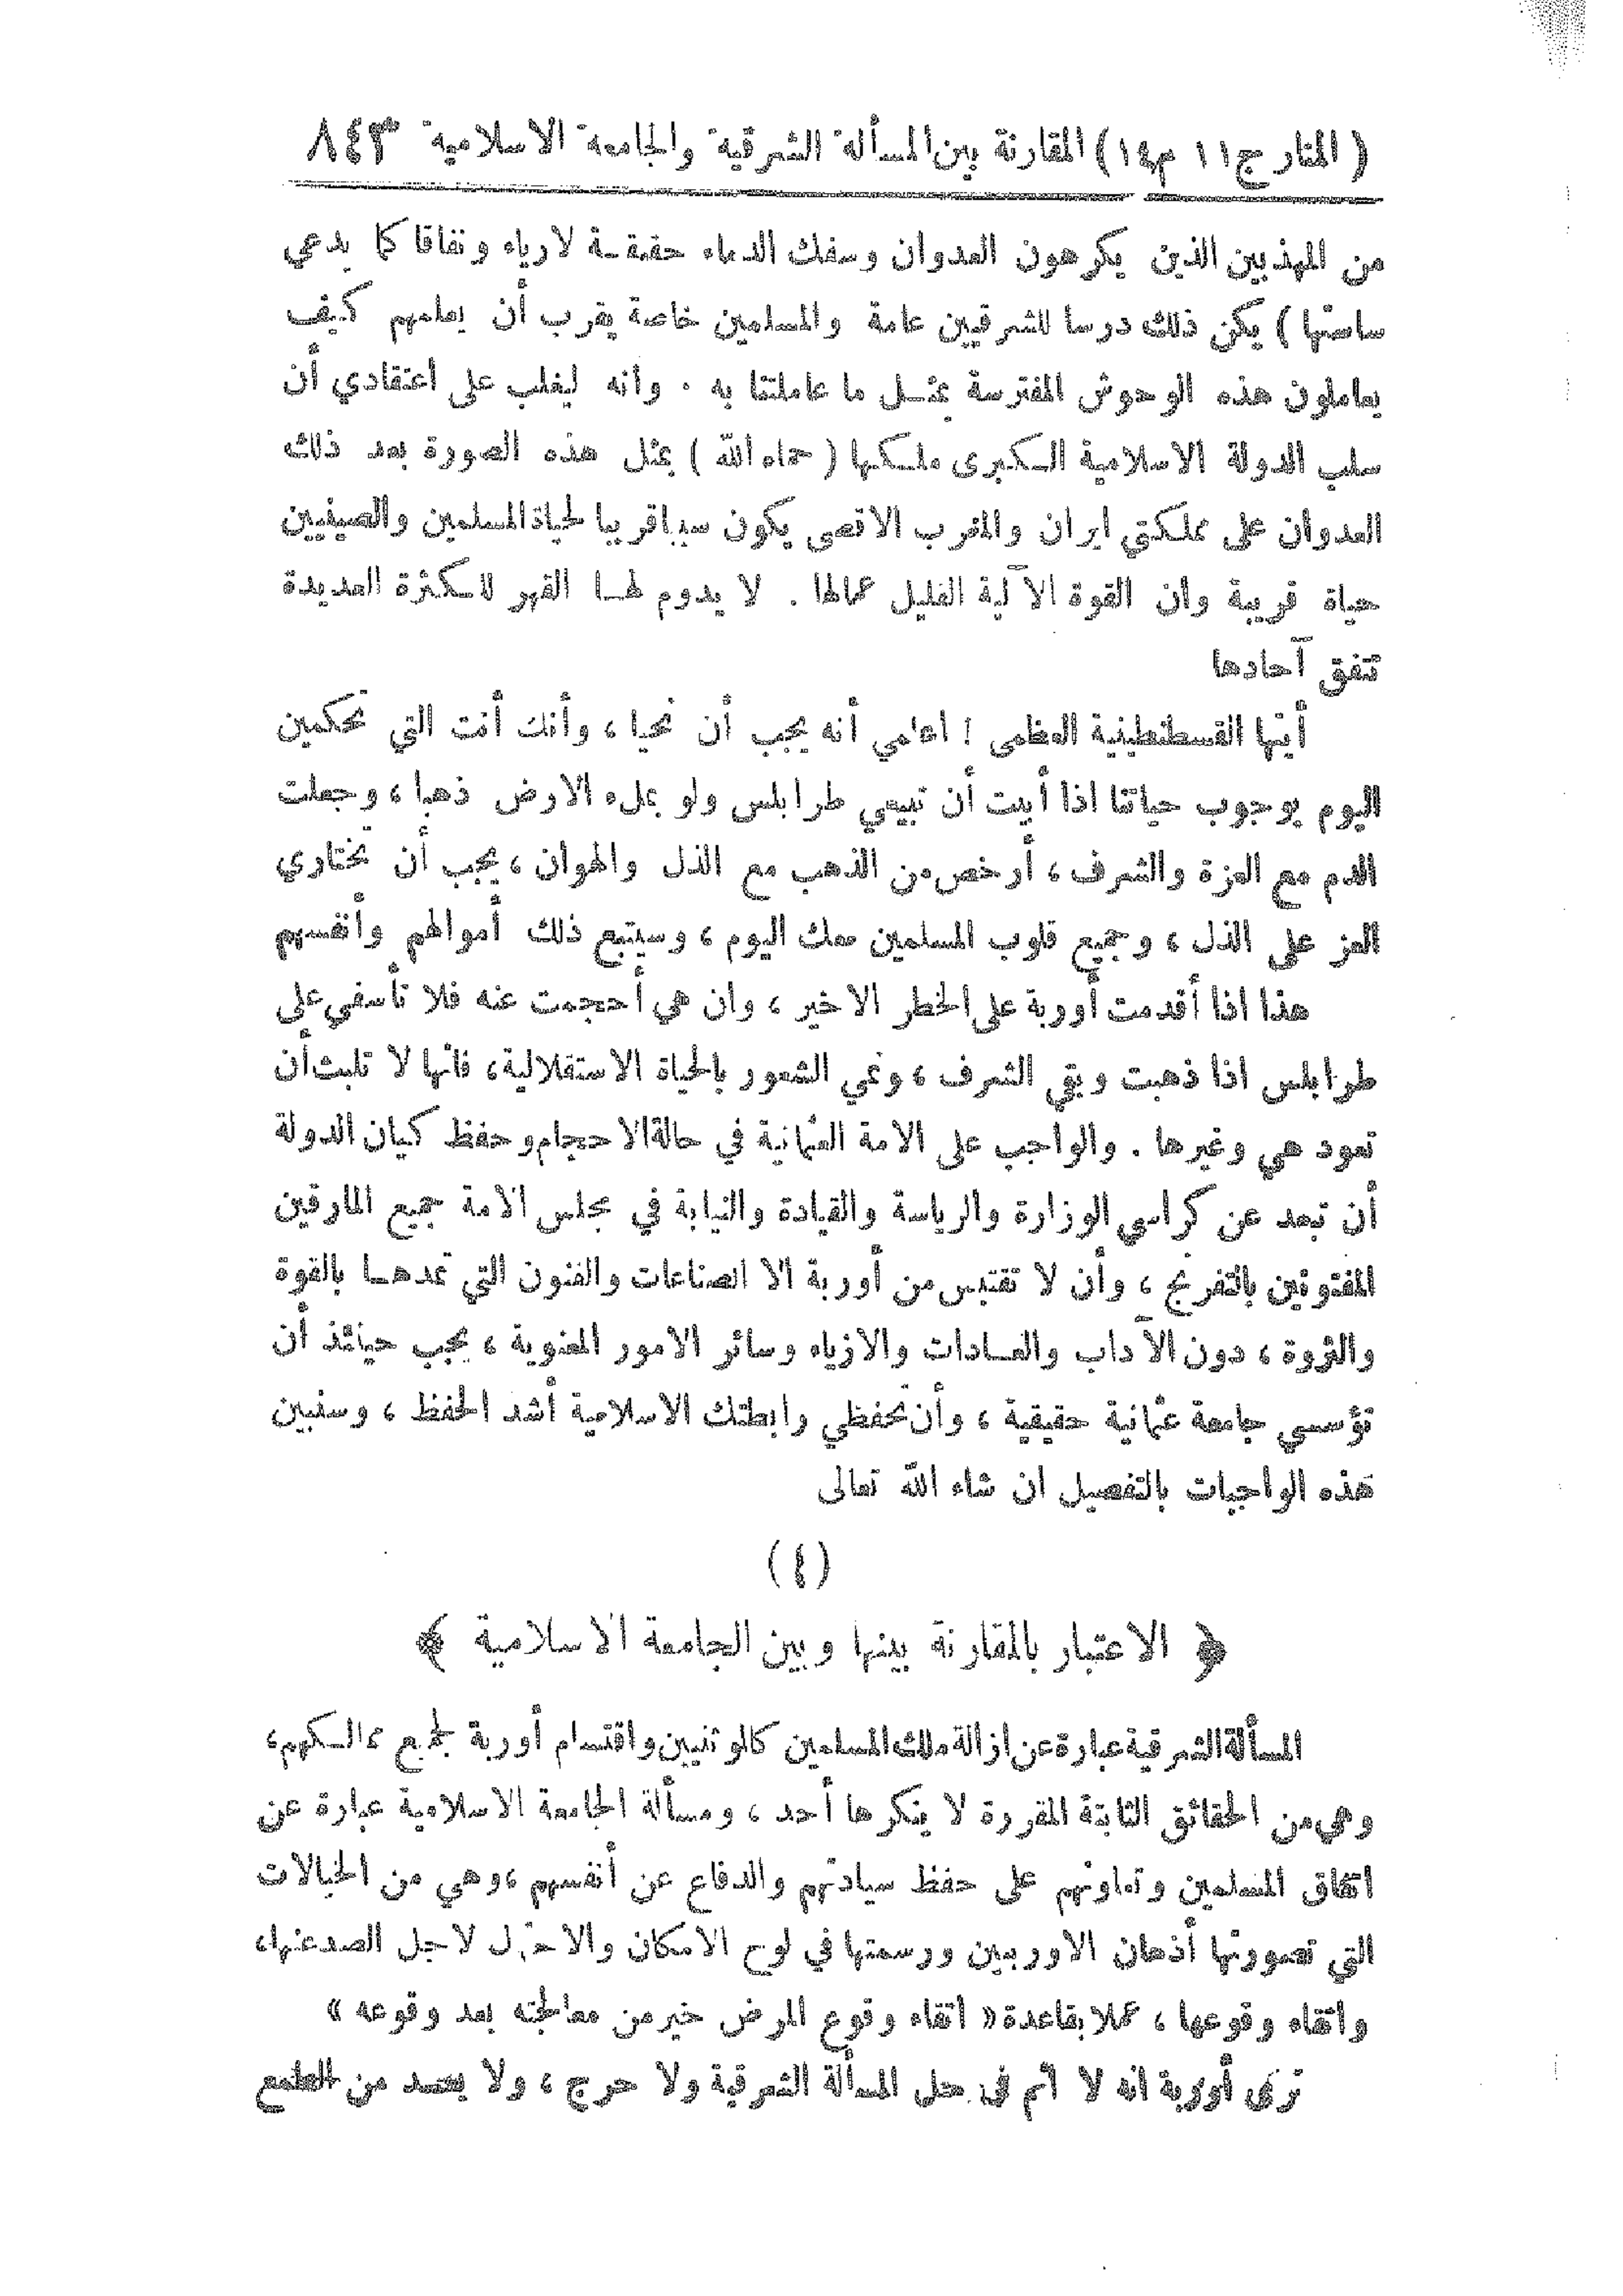 ( المنار ج ١١ م ١٤ ) المقارنة بين المسألة الشرقية والجامعة الاسلامية ٨٤٣
من المهذبين الذين يكرهون العدوان وسفك الدماء حقيقة لارياء ونفاقا كما يدعي
ساستها ) يكن ذلك درسا للشرقيين عامة والمسلمين خاصة يقرب أن يعلمهم كيف
يعاملون هذه الوحوش المفترسة بمثل ما عاملتنا به . وانه ليغلب على اعتقادي أن
سلب الدولة الاسلامية الكبرى ملكها ( حماه الله ) بمثل هذه الصورة بعد ذلك
العدوان على مملكتي ايران والمغرب الاقصى يكون سببا قريبا لحياة المسلمين والصينيين
حياة قريبة وان القوة الآلية القليل عمالها . لا يدوم لها القهر للكثرة العديدة
تتفق آحادها
أيتها القسطنطينية العظمى ! اعلمي أنه يجب أن نحيا ، وأنك أنت التي تحكمين
اليوم بوجوب حياتنا اذا أبيت أن تبيعي طرابلس ولو بملء الارض ذهبا ، وجعلت
الدم مع العزة والشرف ، أرخص من الذهب مع الذل والهوان ، يجب أن تختاري
العز على الذل ، وجميع قلوب المسلمين معك اليوم ، وسيتبع ذلك أموالهم وأنفسهم
هذا اذا أقدمت أوربة على الخطر الاخير ، وان هي أحجمت عنه فلا تأسفي على
طرابلس اذا ذهبت وبقي الشرف ، ونمي الشعور بالحياة الاستقلالية ، فانها لا تلبث أن
تعود هي وغيرها . والواجب على الامة العثمانية في حالة الاحجام وحفظ كيان الدولة
أن تبعد عن كراسي الوزارة والرياسة والقيادة والنيابة في مجلس الامة جميع المارقين
المفتونين بالتفرنج ، وأن لا تقتبس من أوربة الا الصناعات والفنون التي تمدها بالقوة
والثروة ، دون الآداب والعادات والازياء وسائر الامور المعنوية ، يجب حينئذ أن
تؤسسي جامعة عثمانية حقيقية ، وأن تحفظي رابطتك الاسلامية أشد الحفظ ، وسنبين
هذه الواجبات بالتفصيل ان شاء الله تعالى
(٤)
﴿ الاعتبار بالمقارنة بينها وبين الجامعة الاسلامية ﴾
المسألة الشرقية عبارة عن ازالة ملك المسلمين كالوثنيين واقتسام أوربة لجميع ممالكهم ،
وهي من الحقائق الثابتة المقررة لا ينكرها أحد ، ومسألة الجامعة الاسلامية عبارة عن
اتفاق المسلمين وتعاونهم على حفظ سيادتهم والدفاع عن أنفسهم ، وهي من الخيالات
التي تصورتها أذهان الاوربيين ورسمتها في لوح الامكان والاحتمال لاجل الصد عنها ،
واتقاء وقوعها ، عملا بقاعدة « اتقاء وقوع المرض خير من معالجته بعد وقوعه »
ترى أوربة انه لا اثم في حل المسألة الشرقية ولا حرج ، ولا يعد من الطمع